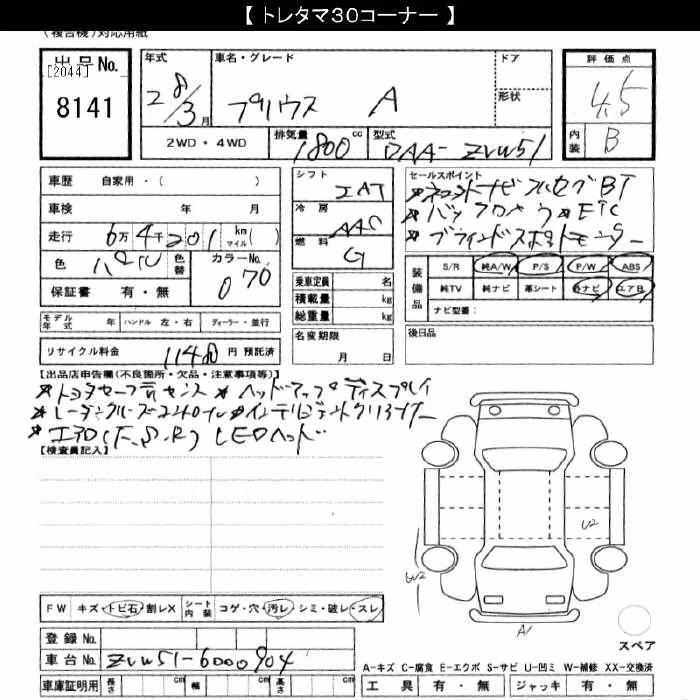 【 トレタマ30コーナー 】
(複合機)対応用紙
出品No.
[2044]
8141
年式
28/3月
車名・グレード
プリウス A
ドア
形状
2WD・4WD
排気量
1800 cc
型式
DAA-ZVW51
評価点
4.5
内装
B
車歴 自家用・( )
車検 年 月
走行 6万4千201 km マイル( )
色 パール
色替
カラーNo.
070
保証書 有・無
シフト
IAT
冷房
AAC
燃料
G
乗車定員 名
積載量 kg
総重量 kg
セールスポイント
*ネロントナビ フルセグBT
*バックカメラ *ETC
*ブラインドスポットモニター
装備品
S/R 純A/W P/S P/W ABS
純TV 純ナビ 革シート 外ナビ エアB
ナビ型番:
モデル年式 年 ハンドル 左・右 ディーラー・並行
名変期限
月 日
後日品
リサイクル料金 11480 円 預託済
【出品店申告欄(不良箇所・欠品・注意事項等)】
*トヨタセーフティセンス *ヘッドアップディスプレイ
*レーダークルーズコントロール *インテリジェントクリアランサー
*エアロ(F.S.R) LEDヘッド
【検査員記入】
U2
W2
A1
FW キズ・トビ石・割レX
シート内装
コゲ・穴・汚レ・シミ・破レ・スレ
登録No.
車台No. ZVW51-6000904
車庫証明用 長さ cm 幅 cm 高さ cm
スペア
A-キズ C-腐食 E-エクボ S-サビ U-凹ミ W-補修 XX-交換済
工具 有・無 ジャッキ 有・無